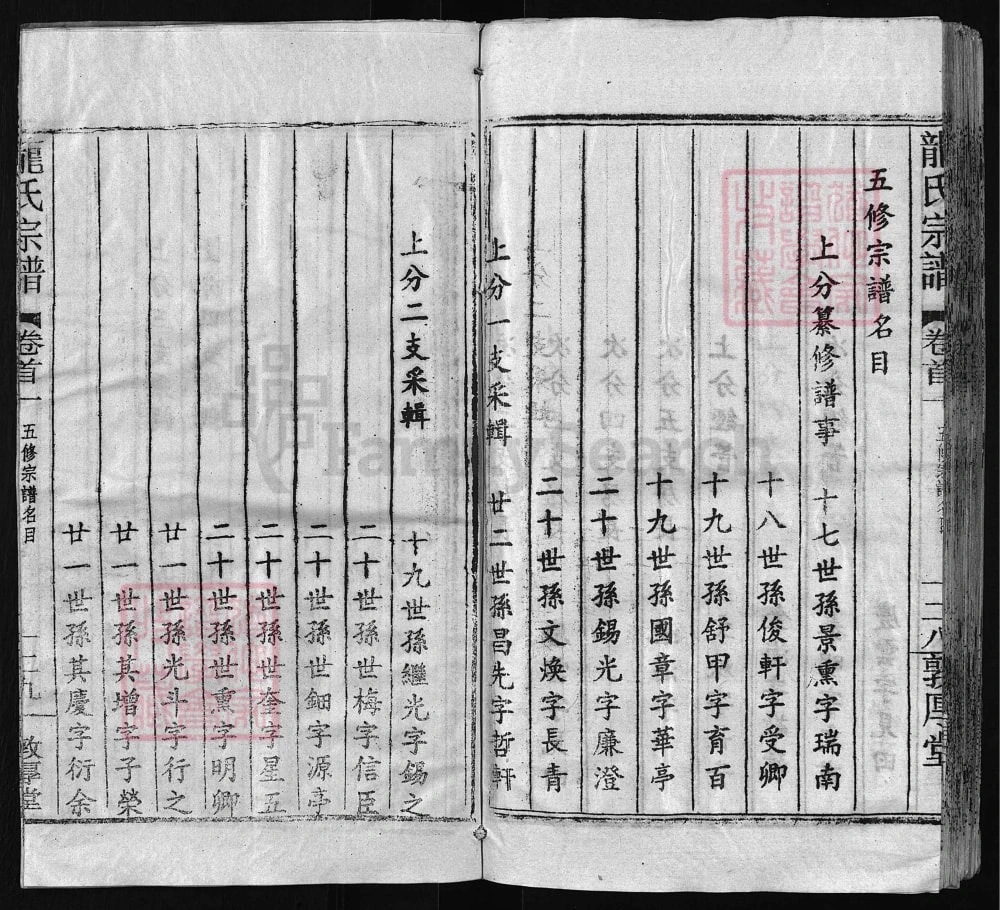 龍氏宗譜 卷首一 五修宗譜名目 二八 敦厚堂
五修宗譜名目
上分纂修譜事 十七世孫景熏字瑞南
十八世孫俊軒字受卿
十九世孫舒甲字育百
十九世孫國章字華亭
二十世孫錫光字廉澄
二十世孫文煥字長青
上分一支采輯 廿二世孫昌先字哲軒
上分二支采輯 十九世孫繼光字錫之
二十世孫世梅字信臣
二十世孫世鈿字源亭
二十世孫世奎字星五
二十世孫世熏字明卿
廿一世孫光斗字行之
廿一世孫其增字子榮
廿一世孫其慶字衍余
龍氏宗譜 卷首一 五修宗譜名目 二九 敦厚堂
FamilySearch